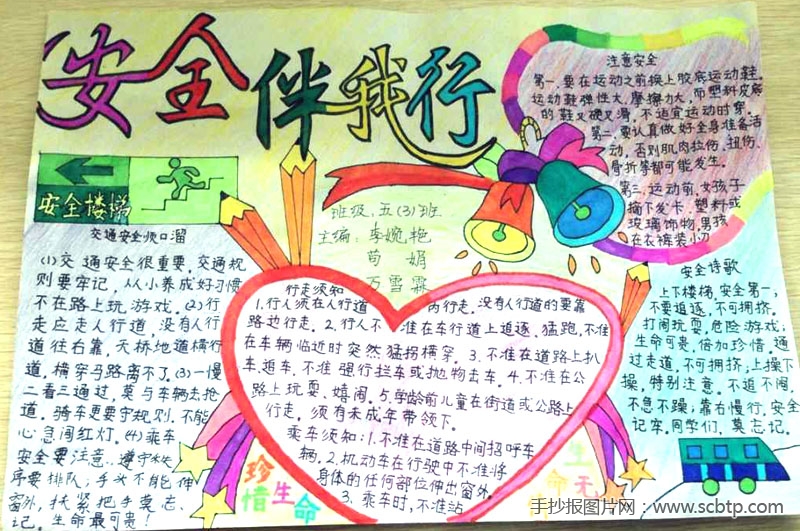 安全伴我行
安全楼梯
班级:五(3)班
主编:李婉艳
苟娟
万雪霖
注意安全
第一.要在运动之前换上胶底运动鞋。
运动鞋弹性大.摩擦力大,而塑料皮底
的鞋又硬又滑,不适宜运动时穿。
第二.要认真做好全身准备活
动,否则肌肉拉伤、扭伤、
骨折等都可能发生。
第三.运动前,女孩子
摘下发卡,塑料或
玻璃饰物,男孩
在衣裤装小刀
交通安全顺口溜
(1)交通安全很重要,交通规
则要牢记,从小养成好习惯
不在路上玩游戏。(2)行
走应走人行道,没有人行
道往右靠,天桥地道横行
道,横穿马路离不了。(3)一慢
二看三通过,莫与车辆去抢
道。骑车更要守规则,不能
心急闯红灯。(4)乘车
安全要注意,遵守秩
序要排队;手头不能伸
窗外,扶紧把手莫忘
记。生命最可贵!
行走须知
1.行人须在人行道内行走,没有人行道的要靠
路边行走。2.行人不准在车行道上追逐、猛跑,不准
在车辆临近时突然猛拐横穿。3.不准在道路上扒
车、追车,不准强行拦车或抛物击车。4.不准在公
路上玩耍、嬉闹。5.学龄前儿童在街道或公路上
行走。须有未成年带领下。
乘车须知:1.不准在道路中间招呼车
辆。2.机动车在行驶中不准将
身体的任何部位伸出窗外。
3.乘车时,不准站
安全诗歌
上下楼梯,安全第一,
不要追逐,不可拥挤。
打闹玩耍,危险游戏;
生命可贵,倍加珍惜。通
过走道,不可拥挤;上操下
操,特别注意。不追不闹,
不急不躁;靠右慢行,安全
记牢。同学们,莫忘记。
珍惜生命
生命无
手抄报图片网:www.scbtp.com